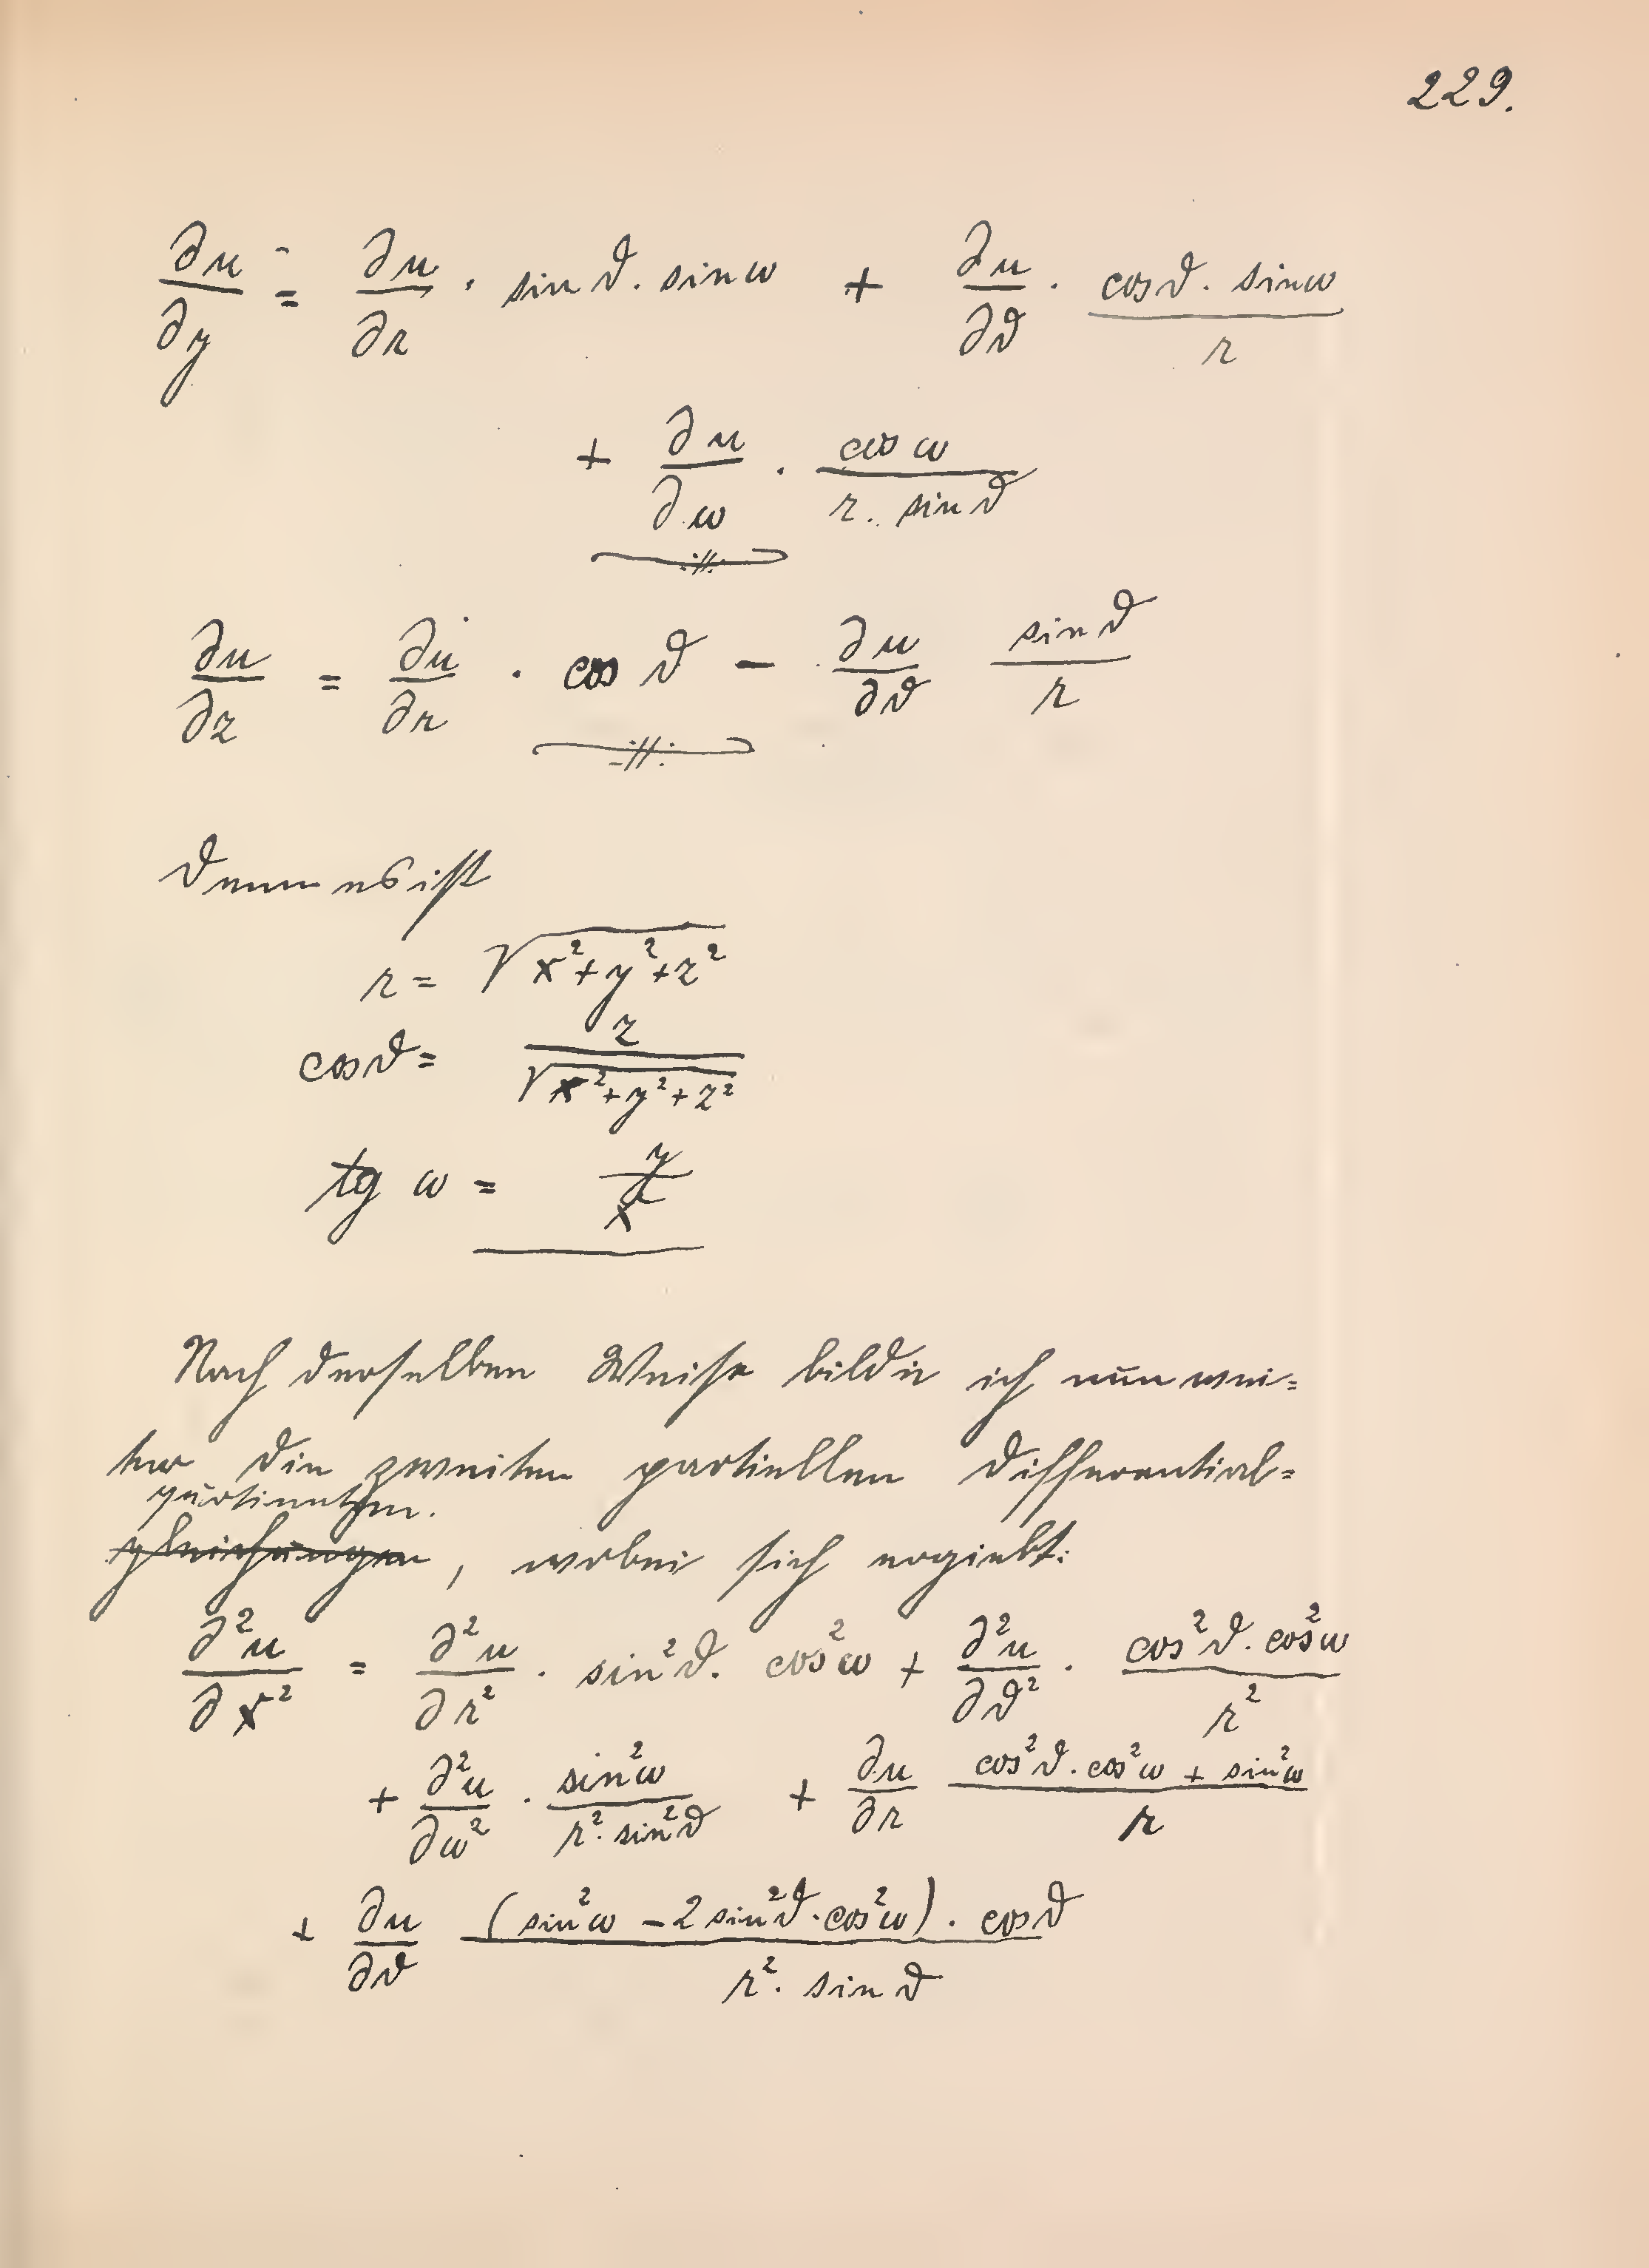 229.
∂u/∂y = ∂u/∂r · sin ϑ · sin ω + ∂u/∂ϑ · (cos ϑ · sin ω)/r
+ ∂u/∂ω · cos ω/(r · sin ϑ)
∂u/∂z = ∂u/∂r · cos ϑ − ∂u/∂ϑ sin ϑ/r
Denn es ist
r = √(x² + y² + z²)
cos ϑ = z/√(x² + y² + z²)
tg ω = y/x
Nach derselben Weise bilde ich nun wei=
ter die zweiten partiellen Differential=
quotienten.
gleichungen, wobei sich ergiebt:
∂²u/∂x² = ∂²u/∂r² · sin²ϑ · cos²ω + ∂²u/∂ϑ² · (cos²ϑ · cos²ω)/r²
+ ∂²u/∂ω² · sin²ω/(r² · sin²ϑ) + ∂u/∂r (cos²ϑ · cos²ω + sin²ω)/r
+ ∂u/∂ϑ ((sin²ω − 2 sin²ϑ · cos²ω) · cos ϑ)/(r² · sin ϑ)